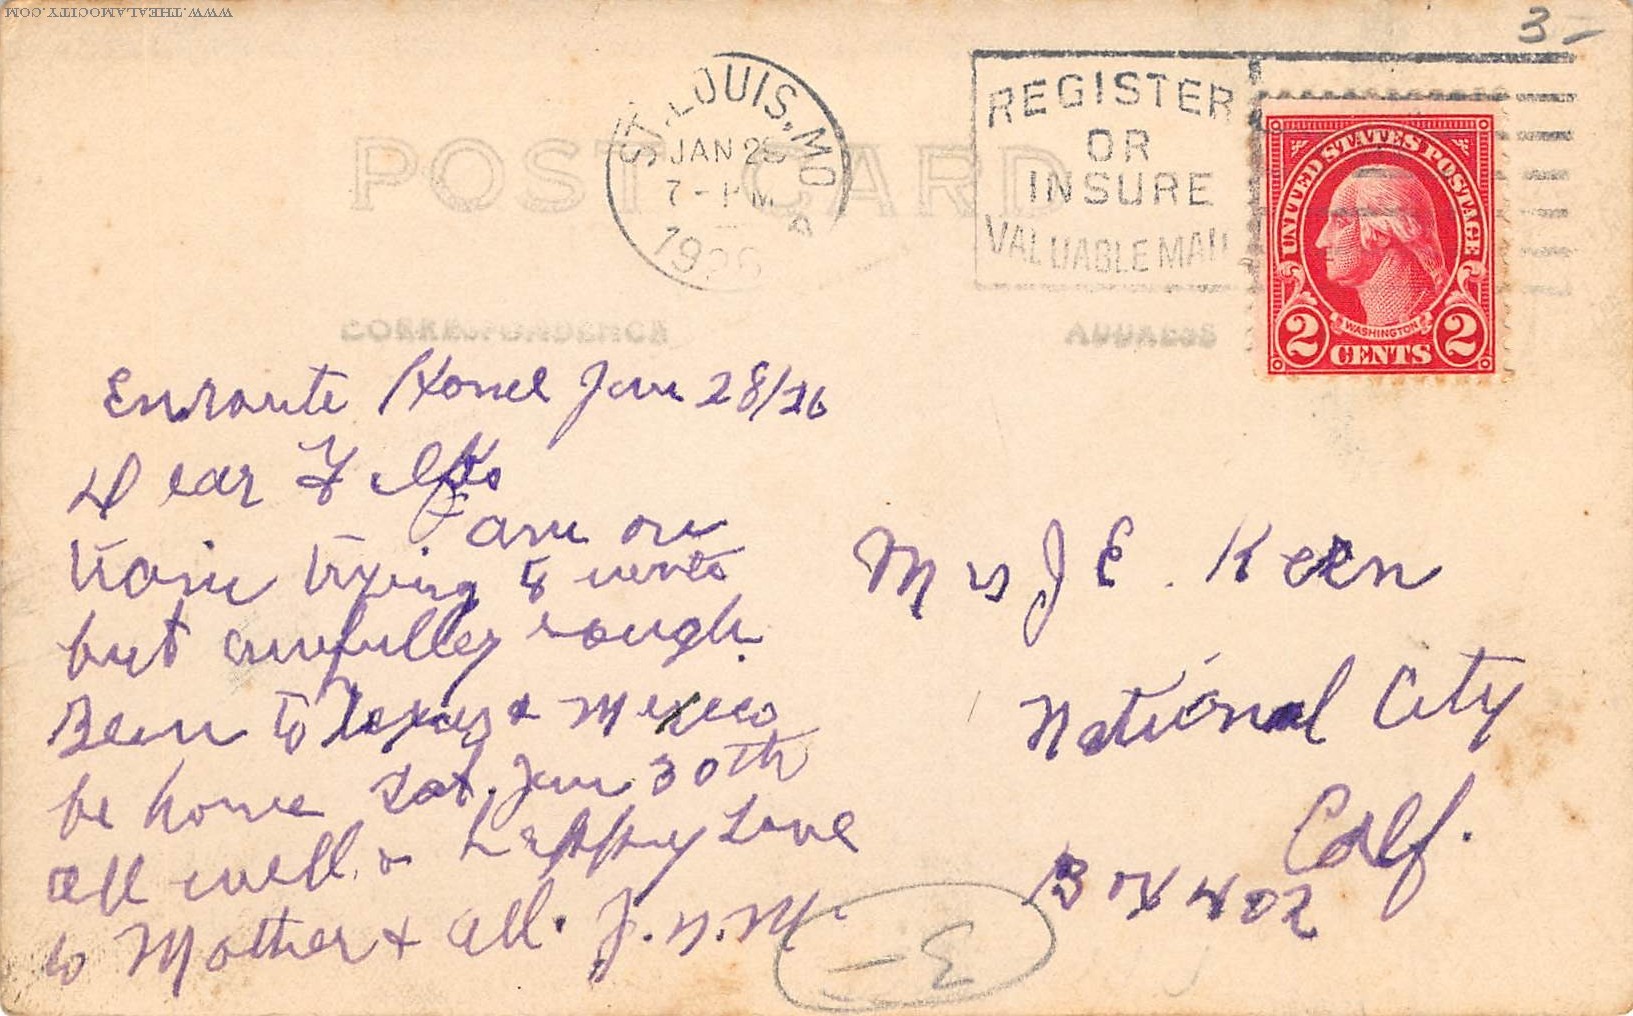 WWW.THEALAMOCITY.COM
3-
POST CARD
ST. LOUIS, MO
JAN 28
7-PM
1926
REGISTER
OR
INSURE
VALUABLE MAIL
UNITED STATES POSTAGE
WASHINGTON
2 CENTS 2
CORRESPONDENCE
ADDRESS
Enroute Home Jan 28/26
Dear Folks
I am on
train trying to write
but awfully rough.
Been to Texas & Mexico
be home Sat. Jan 30th
all well & happy Love
to Mother & all. J.N.M.
Mrs J E. Keen
National City
Calf.
Box 402
3-